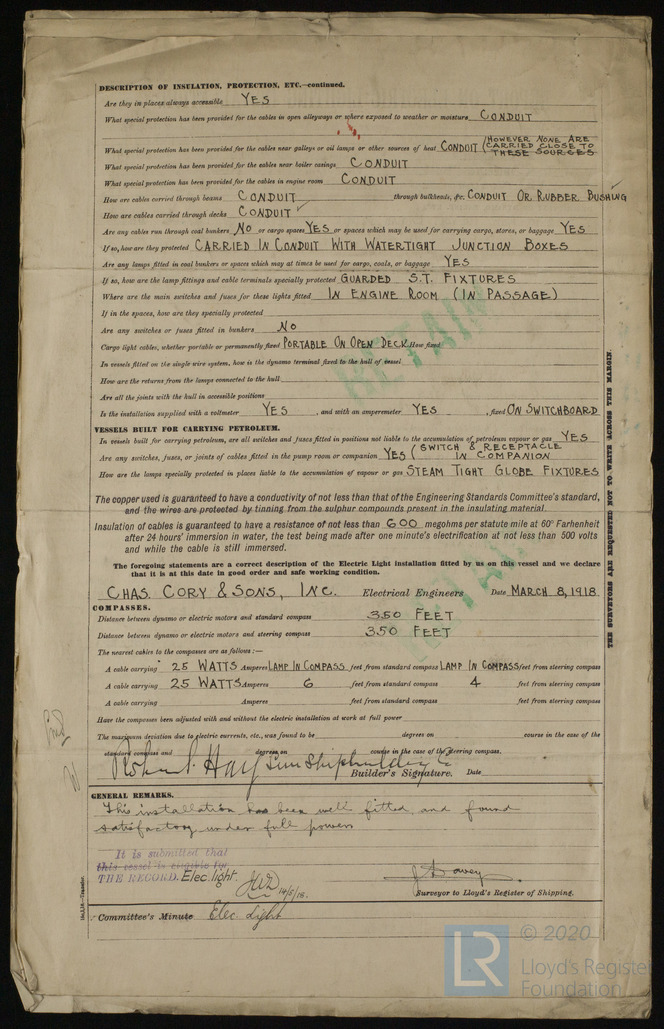 DESCRIPTION OF INSULATION, PROTECTION, ETC.—continued.
Are they in places always accessible YES
What special protection has been provided for the cables in open alleyways or where exposed to weather or moisture CONDUIT
What special protection has been provided for the cables near galleys or oil lamps or other sources of heat CONDUIT (HOWEVER NONE ARE CARRIED CLOSE TO THESE SOURCES
What special protection has been provided for the cables near boiler casings CONDUIT
What special protection has been provided for the cables in engine room CONDUIT
How are cables carried through beams CONDUIT through bulkheads, &c. CONDUIT OR RUBBER BUSHING
How are cables carried through decks CONDUIT ✓
Are any cables run through coal bunkers NO or cargo spaces YES or spaces which may be used for carrying cargo, stores, or baggage YES
If so, how are they protected CARRIED IN CONDUIT WITH WATERTIGHT JUNCTION BOXES
Are any lamps fitted in coal bunkers or spaces which may at times be used for cargo, coals, or baggage YES
If so, how are the lamp fittings and cable terminals specially protected GUARDED S.T. FIXTURES
Where are the main switches and fuses for these lights fitted IN ENGINE ROOM (IN PASSAGE)
If in the spaces, how are they specially protected
Are any switches or fuses fitted in bunkers NO
Cargo light cables, whether portable or permanently fixed PORTABLE ON OPEN DECK How fixed
In vessels fitted on the single wire system, how is the dynamo terminal fixed to the hull of vessel
How are the returns from the lamps connected to the hull
Are all the joints with the hull in accessible positions
Is the installation supplied with a voltmeter YES , and with an amperemeter YES , fixed ON SWITCHBOARD
VESSELS BUILT FOR CARRYING PETROLEUM.
In vessels built for carrying petroleum, are all switches and fuses fitted in positions not liable to the accumulation of petroleum vapour or gas YES
Are any switches, fuses, or joints of cables fitted in the pump room or companion YES (SWITCH & RECEPTACLE IN COMPANION
How are the lamps specially protected in places liable to the accumulation of vapour or gas STEAM TIGHT GLOBE FIXTURES
The copper used is guaranteed to have a conductivity of not less than that of the Engineering Standards Committee's standard,
and the wires are protected by tinning from the sulphur compounds present in the insulating material.
Insulation of cables is guaranteed to have a resistance of not less than 600 megohms per statute mile at 60° Farhenheit
after 24 hours' immersion in water, the test being made after one minute's electrification at not less than 500 volts
and while the cable is still immersed.
The foregoing statements are a correct description of the Electric Light installation fitted by us on this vessel and we declare
that it is at this date in good order and safe working condition.
CHAS. CORY & SONS, INC. Electrical Engineers Date MARCH 8, 1918.
COMPASSES.
Distance between dynamo or electric motors and standard compass 350 FEET
Distance between dynamo or electric motors and steering compass 350 FEET
The nearest cables to the compasses are as follows:—
A cable carrying 25 WATTS Amperes LAMP IN COMPASS feet from standard compass LAMP IN COMPASS feet from steering compass
A cable carrying 25 WATTS Amperes 6 feet from standard compass 4 feet from steering compass
A cable carrying Amperes feet from standard compass feet from steering compass
Have the compasses been adjusted with and without the electric installation at work at full power
The maximum deviation due to electric currents, etc., was found to be degrees on course in the case of the
standard compass and degrees on course in the case of the steering compass.
Sun Shipbuilding Co
Builder's Signature. Date
GENERAL REMARKS.
This installation has been well fitted, and found
satisfactory under full power
It is submitted that
this vessel is eligible for
THE RECORD. Elec. light.
14/5/18.
Surveyor to Lloyd's Register of Shipping.
Committee's Minute Elec. Light
THE SURVEYORS ARE REQUESTED NOT TO WRITE ACROSS THIS MARGIN.
RETAIN
RETAIN
LR
© 2020
Lloyd's Register
Foundation